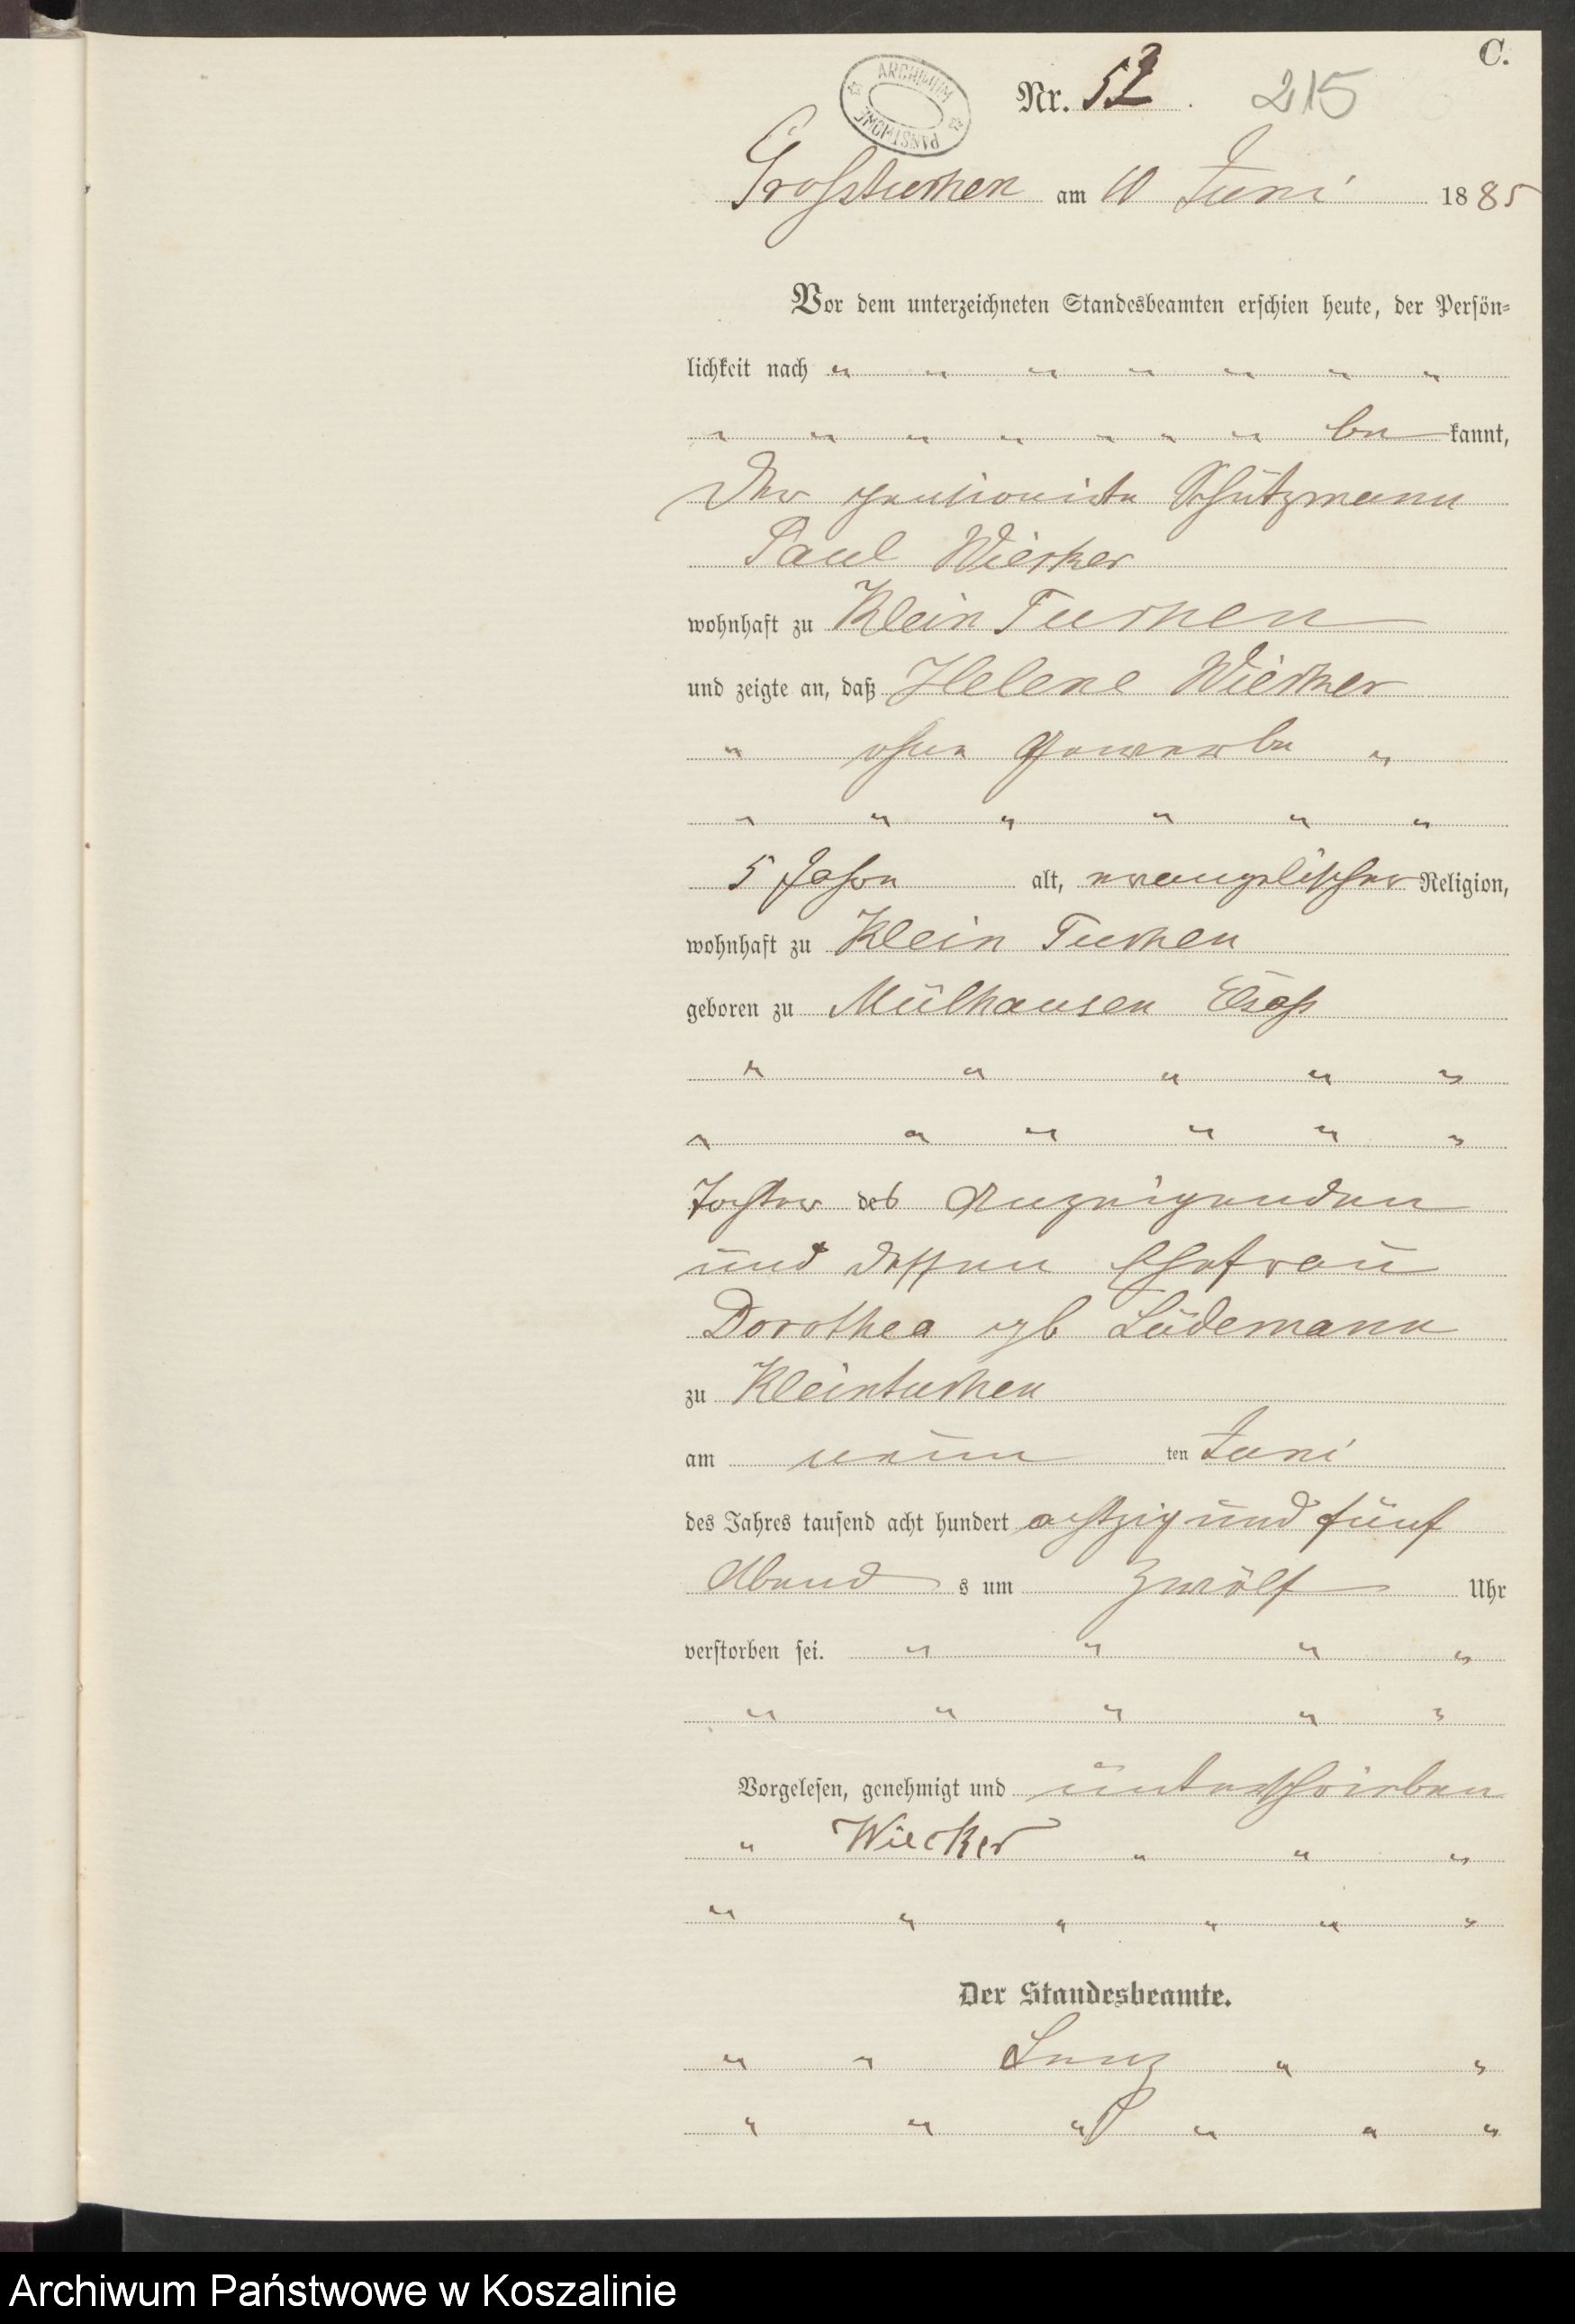 C.
ARCHIWUM PAŃSTWOWE
Nr. 52. 215
Grosstuchen am 10 Juni 1885
Vor dem unterzeichneten Standesbeamten erschien heute, der Persön-
lichkeit nach " " " " " " "
" " " " " " " be kannt,
der pensionirte Schutzmann
Paul Wiecker
wohnhaft zu Klein Tuchen
und zeigte an, daß Helene Wiecker
" ohne Gewerbe "
" " " " " "
5 Jahre alt, evangelischer Religion,
wohnhaft zu Klein Tuchen
geboren zu Mülhausen Elsaß
" " " " "
" " " " " "
Tochter des Anzeigenden
und dessen Ehefrau
Dorothea geb Lüdemann
zu Kleintuchen
am neun ten Juni
des Jahres tausend acht hundert achtzig und fünf
Abend s um zwölf Uhr
verstorben sei. " " " "
" " " " "
Vorgelesen, genehmigt und unterschrieben
" Wiecker " " "
" " " " " "
Der Standesbeamte.
" " " "
" " " " " "
Archiwum Państwowe w Koszalinie